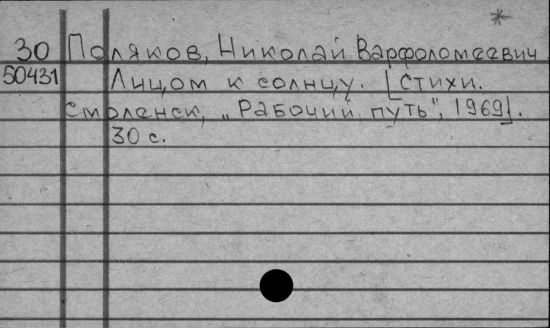 *
30 Поляков, Николай Варфоломеевич
50431 Лицом к солнцу. [Стихи.
Смоленск, „Рабочий путь", 1969].
30 с.